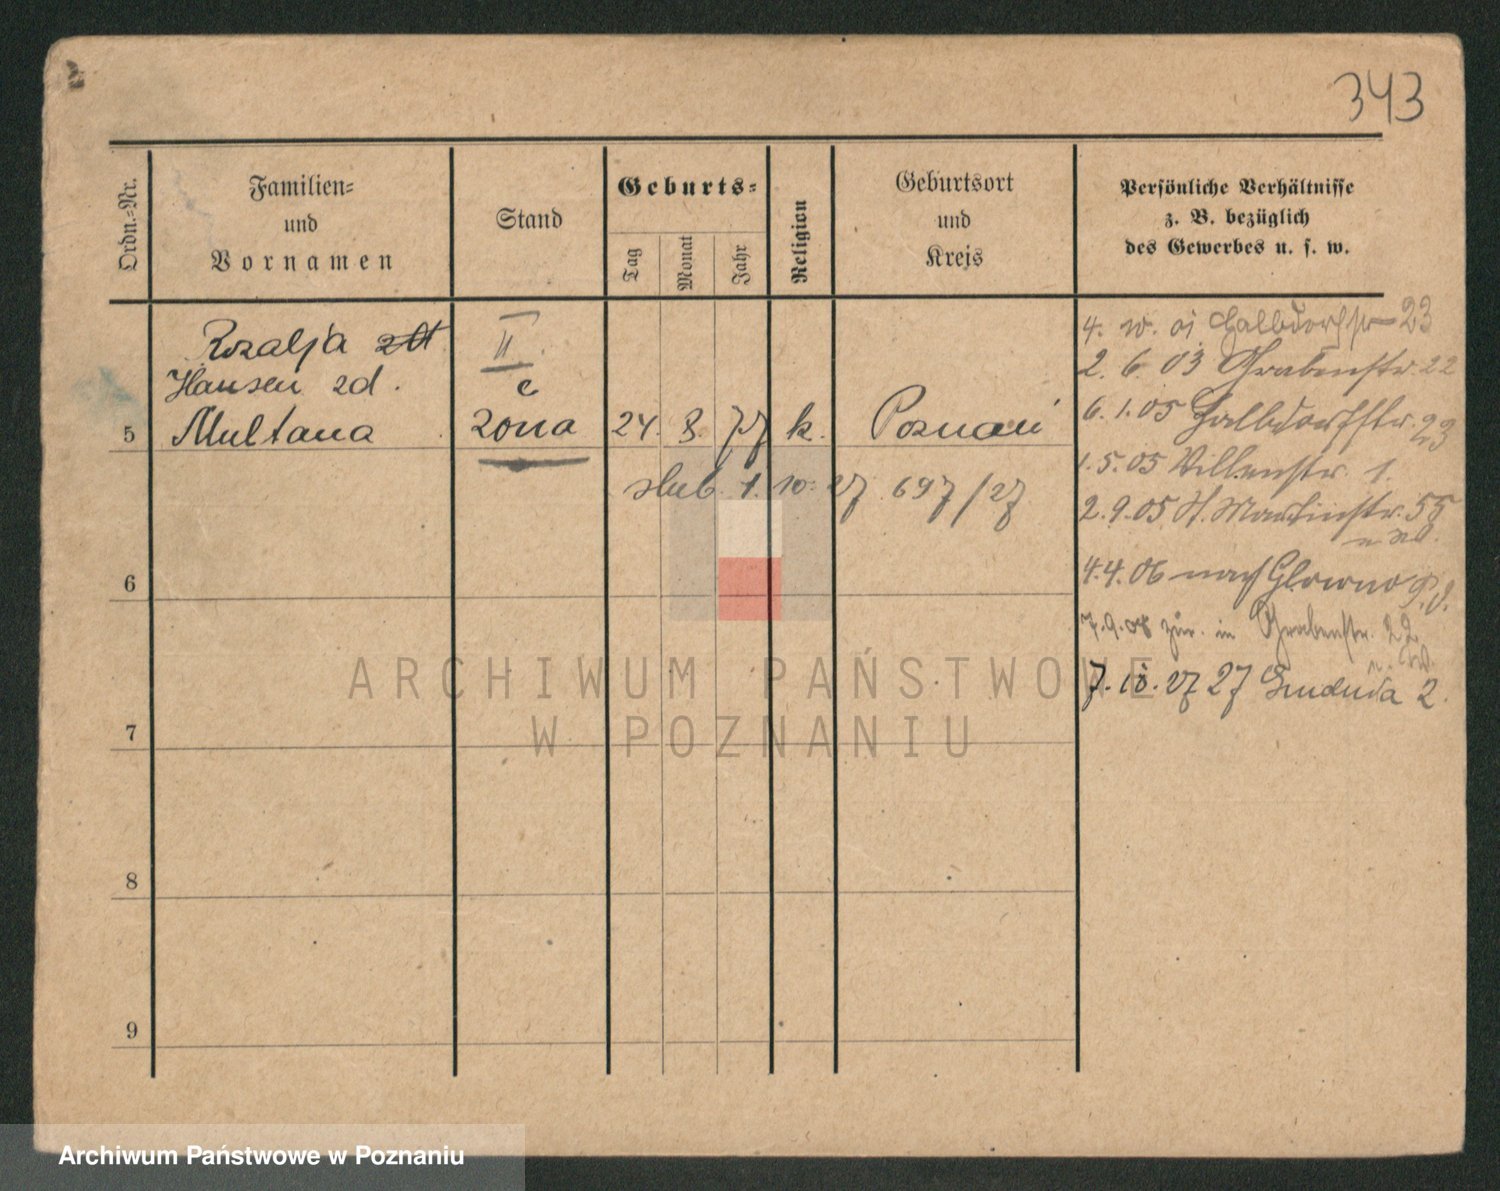 343
Ordn.-Nr.
Familien-
und
Vornamen
Stand
Geburts-
Tag
Monat
Jahr
Religion
Geburtsort
und
Kreis
Persönliche Verhältnisse
z. B. bezüglich
des Gewerbes u. s. w.
Rozalja
Hansen zd.
Multana
II
c
żona
5
24. 8. 77
k.
Poznań
ślub 1. 10. 27 697/27
6
7
8
9
4. 10. 01 Halbdorfstr 23
2. 6. 03 Grabenstr. 22
6. 1. 05 Halbdorfstr. 23
1. 5. 05 Villenstr. 1.
2. 9. 05 St. Martinstr. 55
4. 4. 06 nach Glowno
7. 9. 08 zur. in Grabenstr. 22
7. 10. 27 27 Grudnia 2.
ARCHIWUM PAŃSTWOWE
W POZNANIU
Archiwum Państwowe w Poznaniu